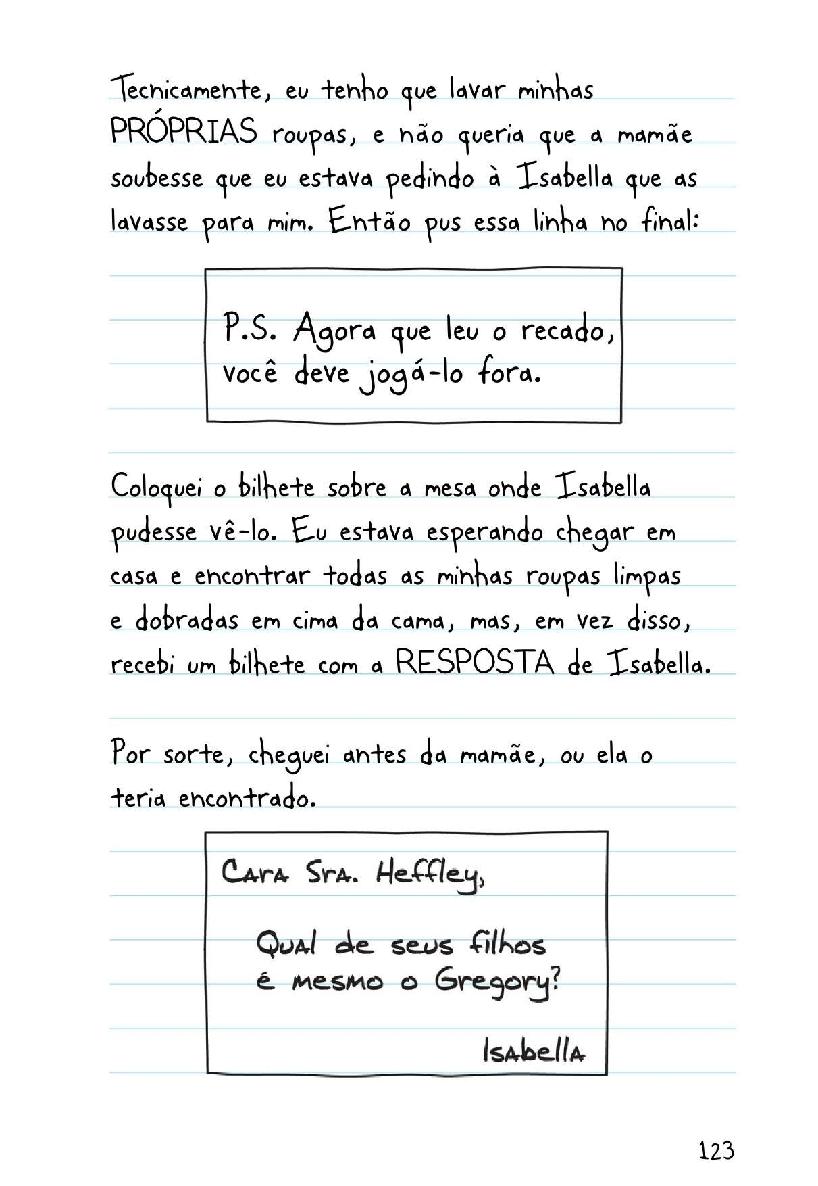 Tecnicamente, eu tenho que lavar minhas
PRÓPRIAS roupas, e não queria que a mamãe
soubesse que eu estava pedindo à Isabella que as
lavasse para mim. Então pus essa linha no final:
P.S. Agora que leu o recado,
você deve jogá-lo fora.
Coloquei o bilhete sobre a mesa onde Isabella
pudesse vê-lo. Eu estava esperando chegar em
casa e encontrar todas as minhas roupas limpas
e dobradas em cima da cama, mas, em vez disso,
recebi um bilhete com a RESPOSTA de Isabella.
Por sorte, cheguei antes da mamãe, ou ela o
teria encontrado.
Cara Sra. Heffley,
Qual de seus filhos
é mesmo o Gregory?
Isabella
123